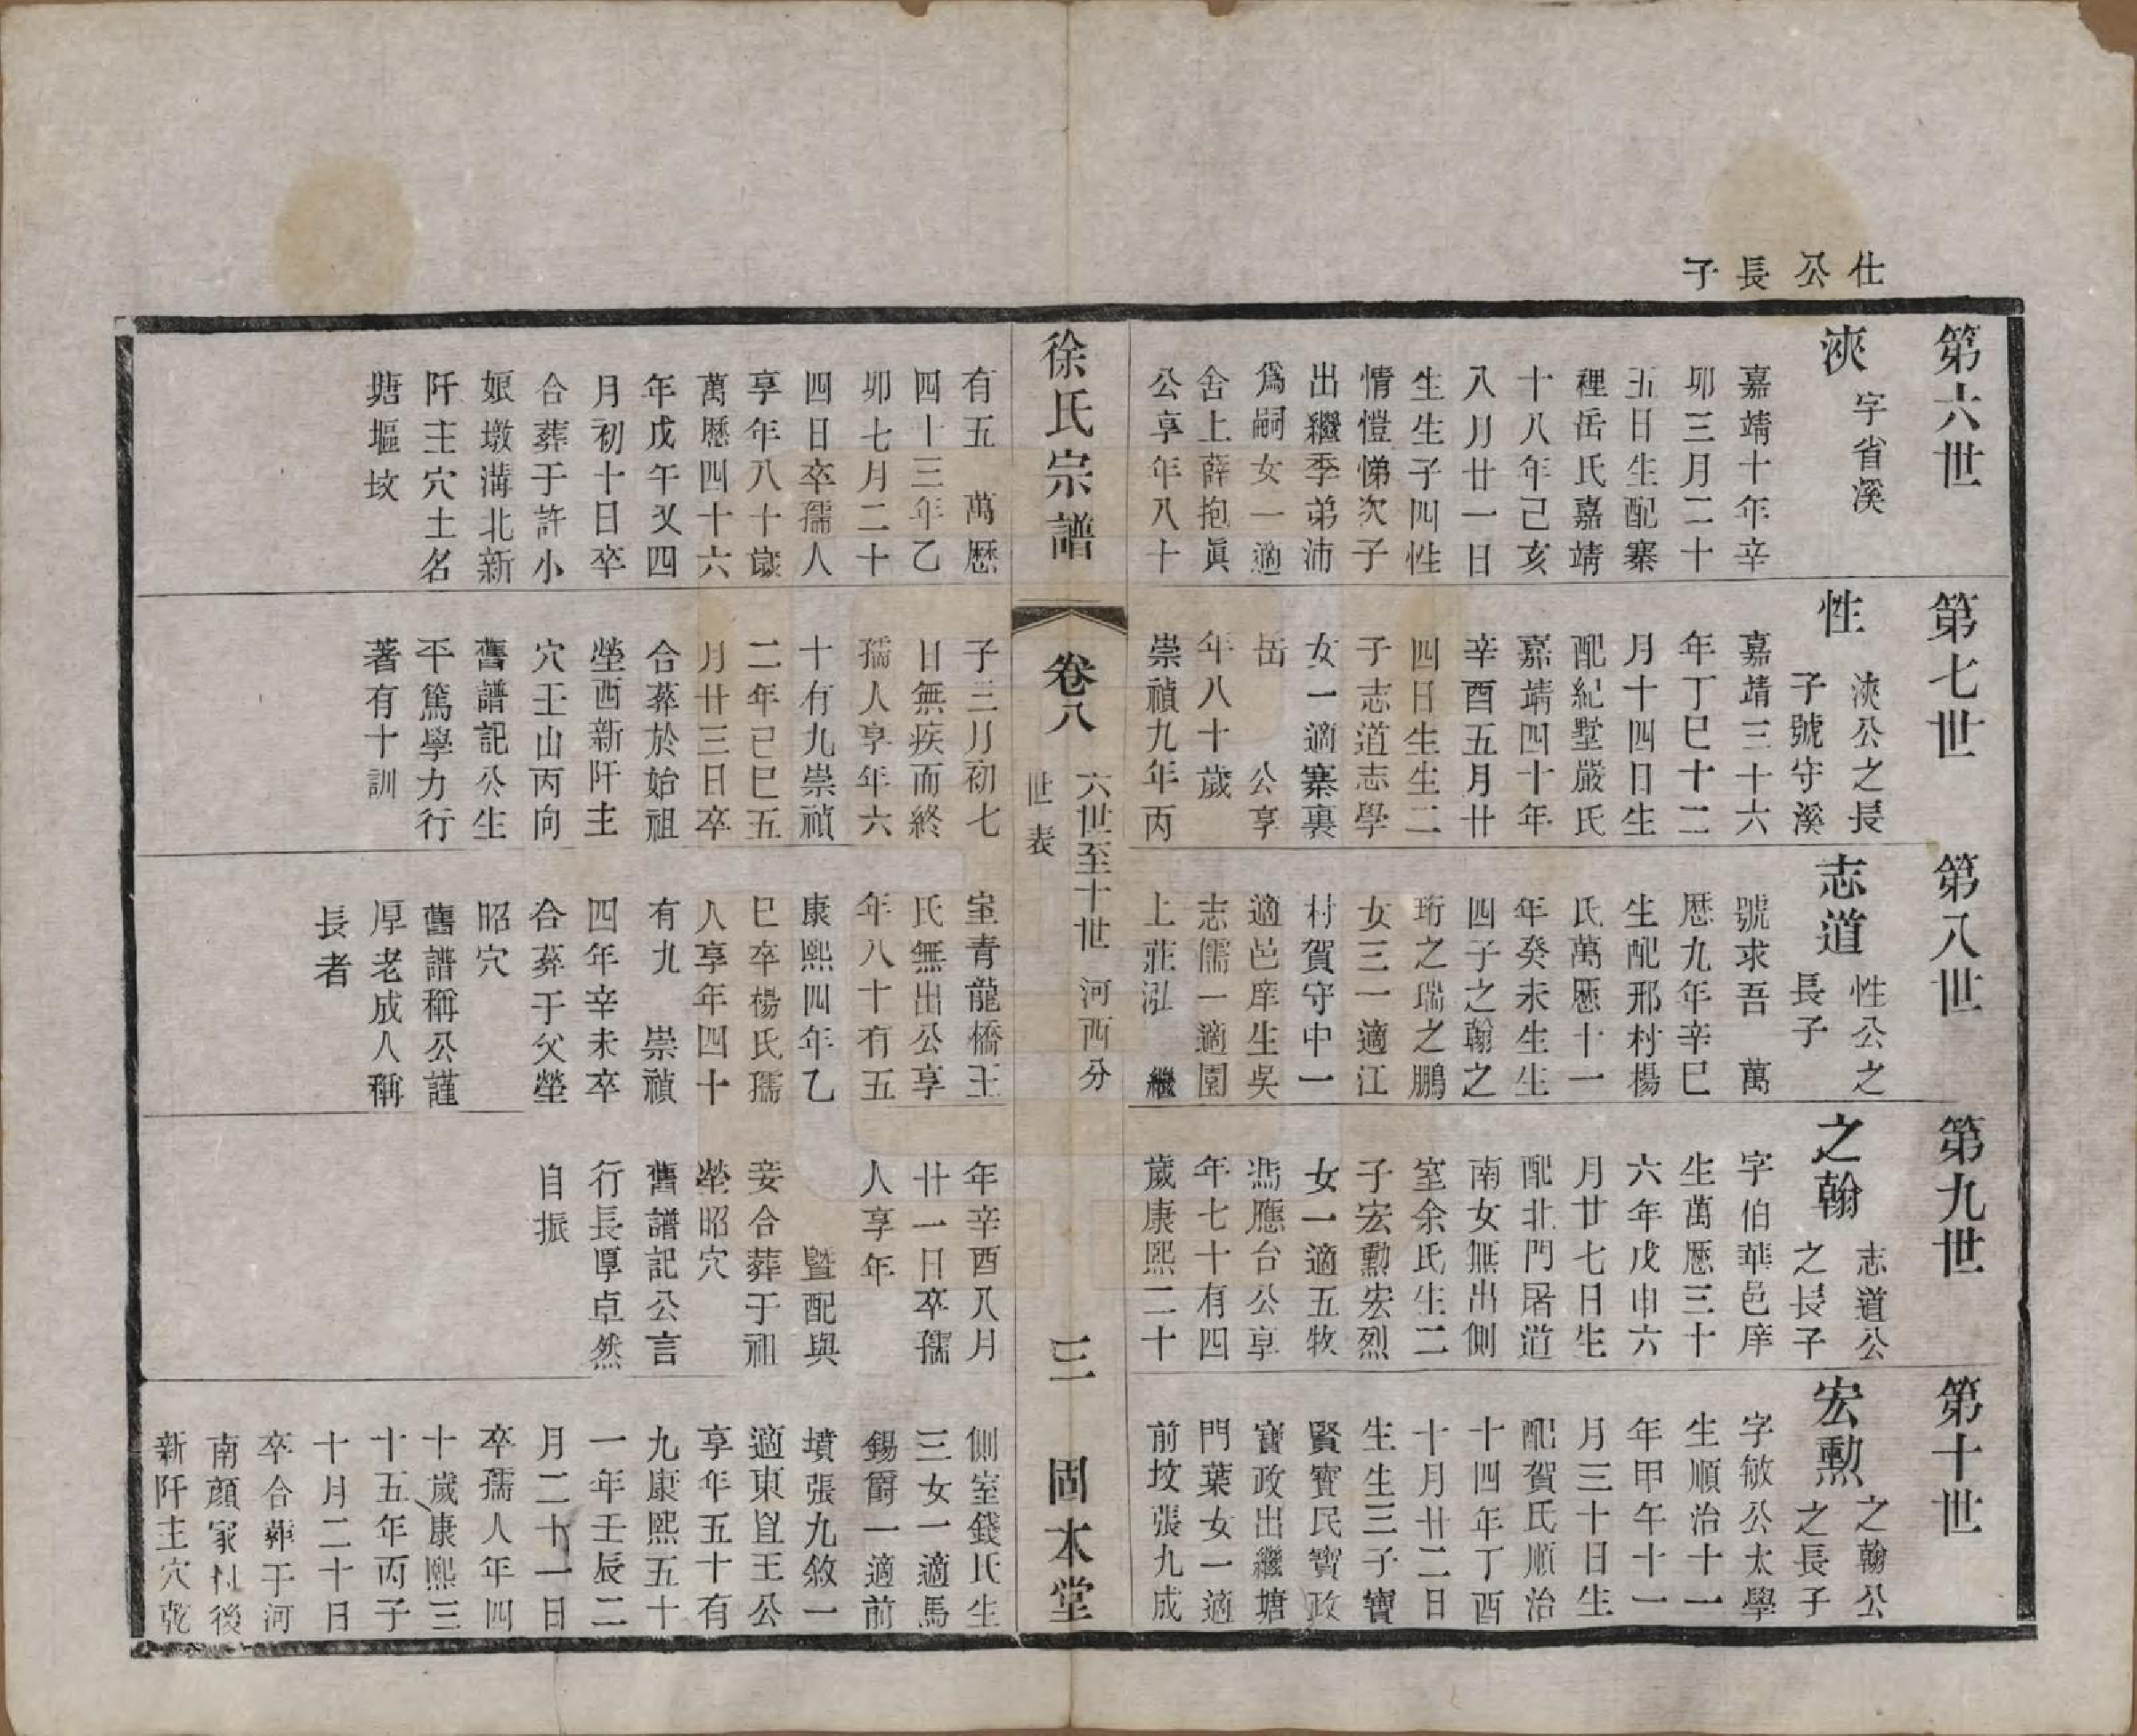 仕公長子
第六世
浹
字省溪
嘉靖十年辛
卯三月二十
五日生配寨
裡岳氏嘉靖
十八年己亥
八月廿一日
生生子四性
情愷悌次子
出繼季弟沛
爲嗣女一適
舍上薛抱眞
公享年八十
有五 萬歷
四十三年乙
卯七月二十
四日卒孺人
享年八十歲
萬歷四十六
年戊午又四
月初十日卒
合葬于許小
娘墩溝北新
阡主穴土名
塘堰坟
第七世
性
浹公之長
子號守溪
嘉靖三十六
年丁巳十二
月十四日生
配紀墅嚴氏
嘉靖四十年
辛酉五月廿
四日生生二
子志道志學
女一適寨裏
岳 公享
年八十歲
崇禎九年丙
子三月初七
日無疾而終
孺人享年六
十有九崇禎
二年己巳五
月廿三日卒
合葬於始祖
塋西新阡主
穴壬山丙向
舊譜記公生
平篤學力行
著有十訓
第八世
志道
性公之
長子
號求吾 萬
歷九年辛巳
生配邢村楊
氏萬歷十一
年癸未生生
四子之翰之
珩之瑞之鵬
女三一適江
村賀守中一
適邑庠生吳
志儒一適園
上莊泓 繼
室青龍橋王
氏無出公享
年八十有五
康熙四年乙
巳卒楊氏孺
人享年四十
有九 崇禎
四年辛未卒
合葬于父塋
昭穴
舊譜稱公謹
厚老成人稱
長者
第九世
之翰
志道公
之長子
字伯華邑庠
生萬歷三十
六年戊申六
月廿七日生
配北門屠道
南女無出側
室余氏生二
子宏勳宏烈
女一適五牧
馮應台公享
年七十有四
歲康熙二十
年辛酉八月
廿一日卒孺
人享年
暨配與
妾合葬于祖
塋昭穴
舊譜記公言
行長厚卓然
自振
第十世
宏勳
之翰公
之長子
字敏公太學
生順治十一
年甲午十一
月三十日生
配賀氏順治
十四年丁酉
十月廿二日
生生三子寶
賢寶民寶政
寶政出繼塘
門葉女一適
前坟張九成
側室錢氏生
三女一適馬
錫爵一適前
墳張九敘一
適東𥄕王公
享年五十有
九康熙五十
一年壬辰二
月二十一日
卒孺人年四
十歲康熙三
十五年丙子
十月二十日
卒合葬于河
南顏家村後
新阡主穴乾
徐氏宗譜
卷八
六世至十世 河西分
世表
三
固本堂